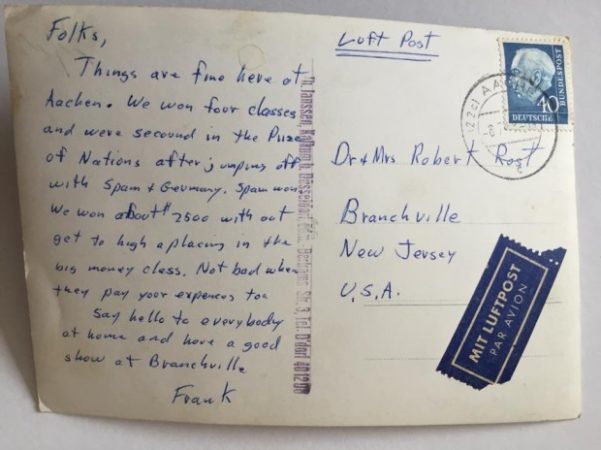 Folks,
Things are fine here at
Aachen. We won four classes
and were second in the Prize
of Nations after jumping off
with Spain & Germany. Spain won
We won about $2500 with out
get to high a placing in the
big money class. Not bad when
they pay your expences too
Say hello to everybody
at home and have a good
show at Branchville
Frank
Th. Janssen, Kalkum b. Düsseldorf
Str. 3, Tel. D'dorf
Luft Post
Dr & Mrs Robert Rost
Branchville
New Jersey
U.S.A.
40
DEUTSCHE
BUNDESPOST
(22c) AACHEN
MIT LUFTPOST
PAR AVION